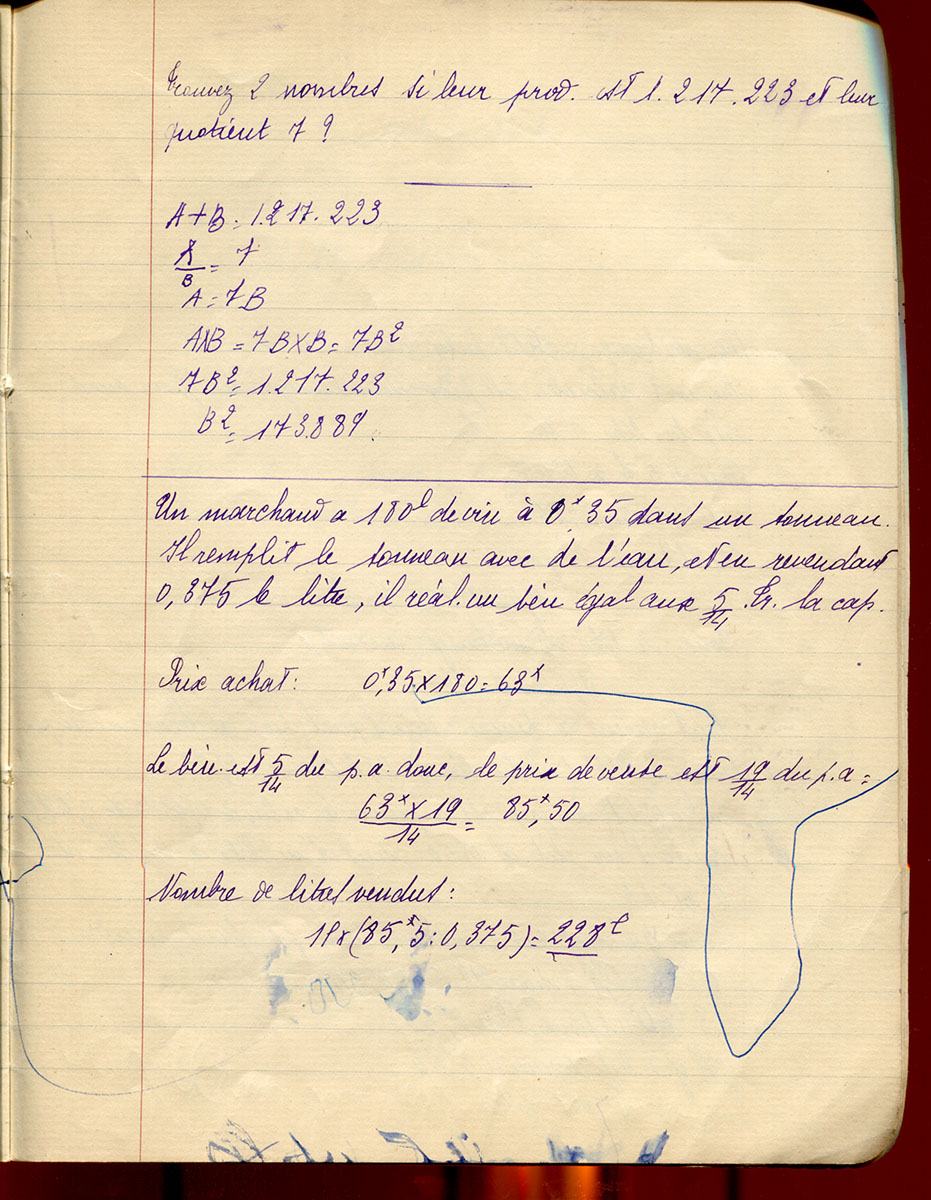 Trouvez 2 nombres si leur prod. est 1.217.223 et leur
quotient 7 ?
A+B = 1.217.223
A/B = 7
A = 7B
A×B = 7B×B = 7B²
7B² = 1.217.223
B² = 173.889.
Un marchand a 180ˡ de vin à 0ˣ,35 dans un tonneau.
Il remplit le tonneau avec de l'eau, et en revendant
0,375 le litre, il réal. un bén égal aux 5/14. Tr. la cap.
Prix achat: 0ˣ,35 × 180 = 63ˣ
Le bén. est 5/14 du p.a. donc, le prix de vente est 19/14 du p.a =
63ˣ × 19/14 = 85ˣ,50
Nombre de litres vendus :
1ˡ × (85ˣ,5 : 0,375) = 228ˡ